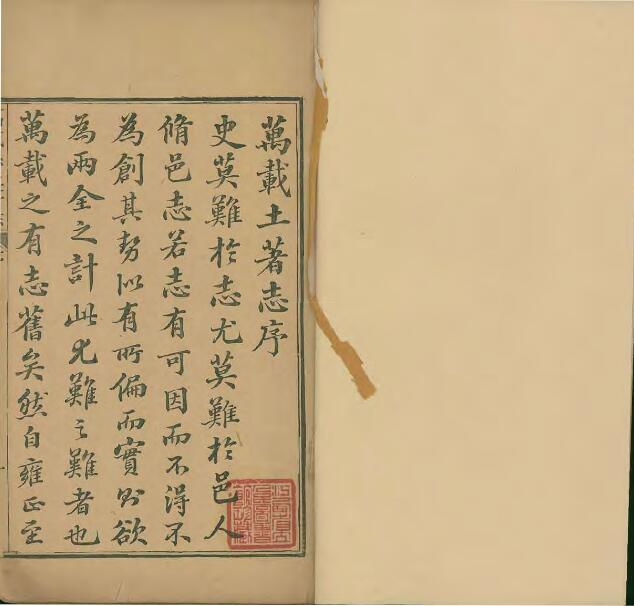 萬載土著志序
史莫難於志尤莫難於邑人
脩邑志若志有可因而不得不
為創其勢似有所偏而實則欲
為兩全之計此尤難之難者也
萬載之有志舊矣然自雍正至